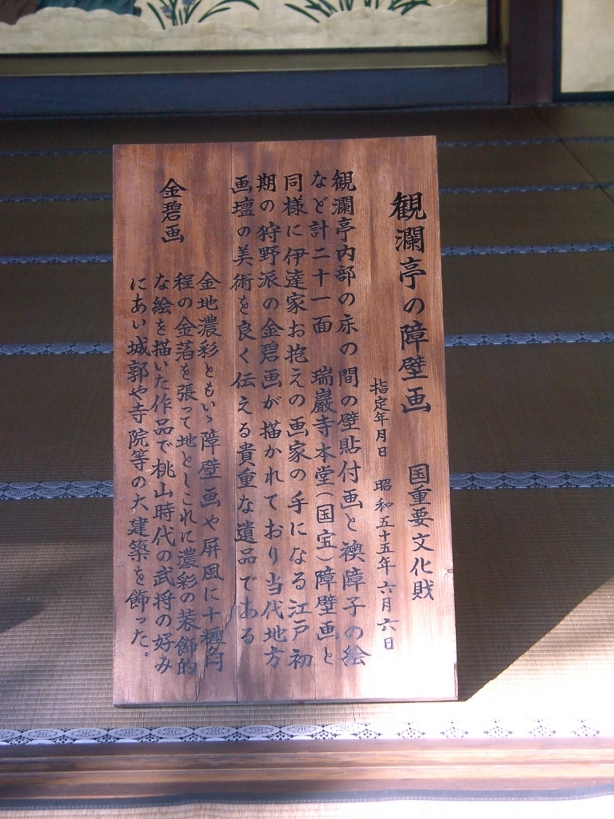 観瀾亭の障壁画　国重要文化財
指定年月日　昭和五十五年六月六日
観瀾亭内部の床の間の壁貼付画と襖障子の絵
など計二十一面　瑞巖寺本堂(国宝)障壁画と
同様に伊達家お抱えの画家の手になる江戸初
期の狩野派の金碧画が描かれており当代地方
画壇の美術を良く伝える貴重な遺品である
金碧画
金地濃彩ともいゝ障壁画や屏風に十糎角
程の金箔を張って地としこれに濃彩の装飾的
な絵を描いた作品で桃山時代の武将の好み
にあい城郭や寺院等の大建築を飾った。